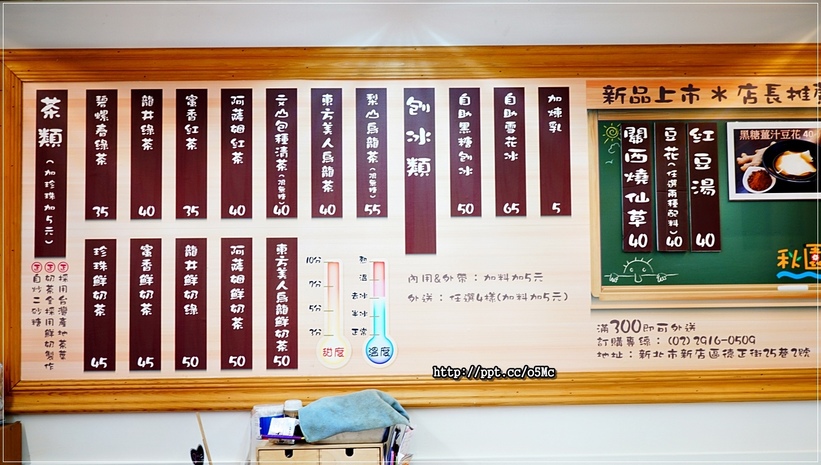 茶類(加珍珠加5元)
碧螺春綠茶 35
龍井綠茶 40
蜜香紅茶 35
阿薩姆紅茶 40
文山包種清茶(微焦糖) 40
東方美人烏龍茶 40
梨山烏龍茶 55
刨冰類
自助黑糖刨冰 50
自助雪花冰 65
加煉乳 5
珍珠鮮奶茶 45
蜜香鮮奶茶 45
龍井鮮奶綠 50
阿薩姆鮮奶茶 50
東方美人烏龍鮮奶茶 50
採用台灣產地茶葉
奶茶全採用鮮奶製作
自炒二砂糖
10分
7分
5分
3分
甜度
熱
溫
去冰
半冰
正常
溫度
內用&外帶:加料加5元
外送:任選4樣(加料加5元)
新品上市*店長推薦
關西燒仙草 40
豆花(任選兩種配料) 40
紅豆湯 40
黑糖薑汁豆花 40
秋園
滿300即可外送
訂購專線:(02)2916-0509
地址:新北市新店區德正街25巷2號
http://ppt.cc/o5Mc